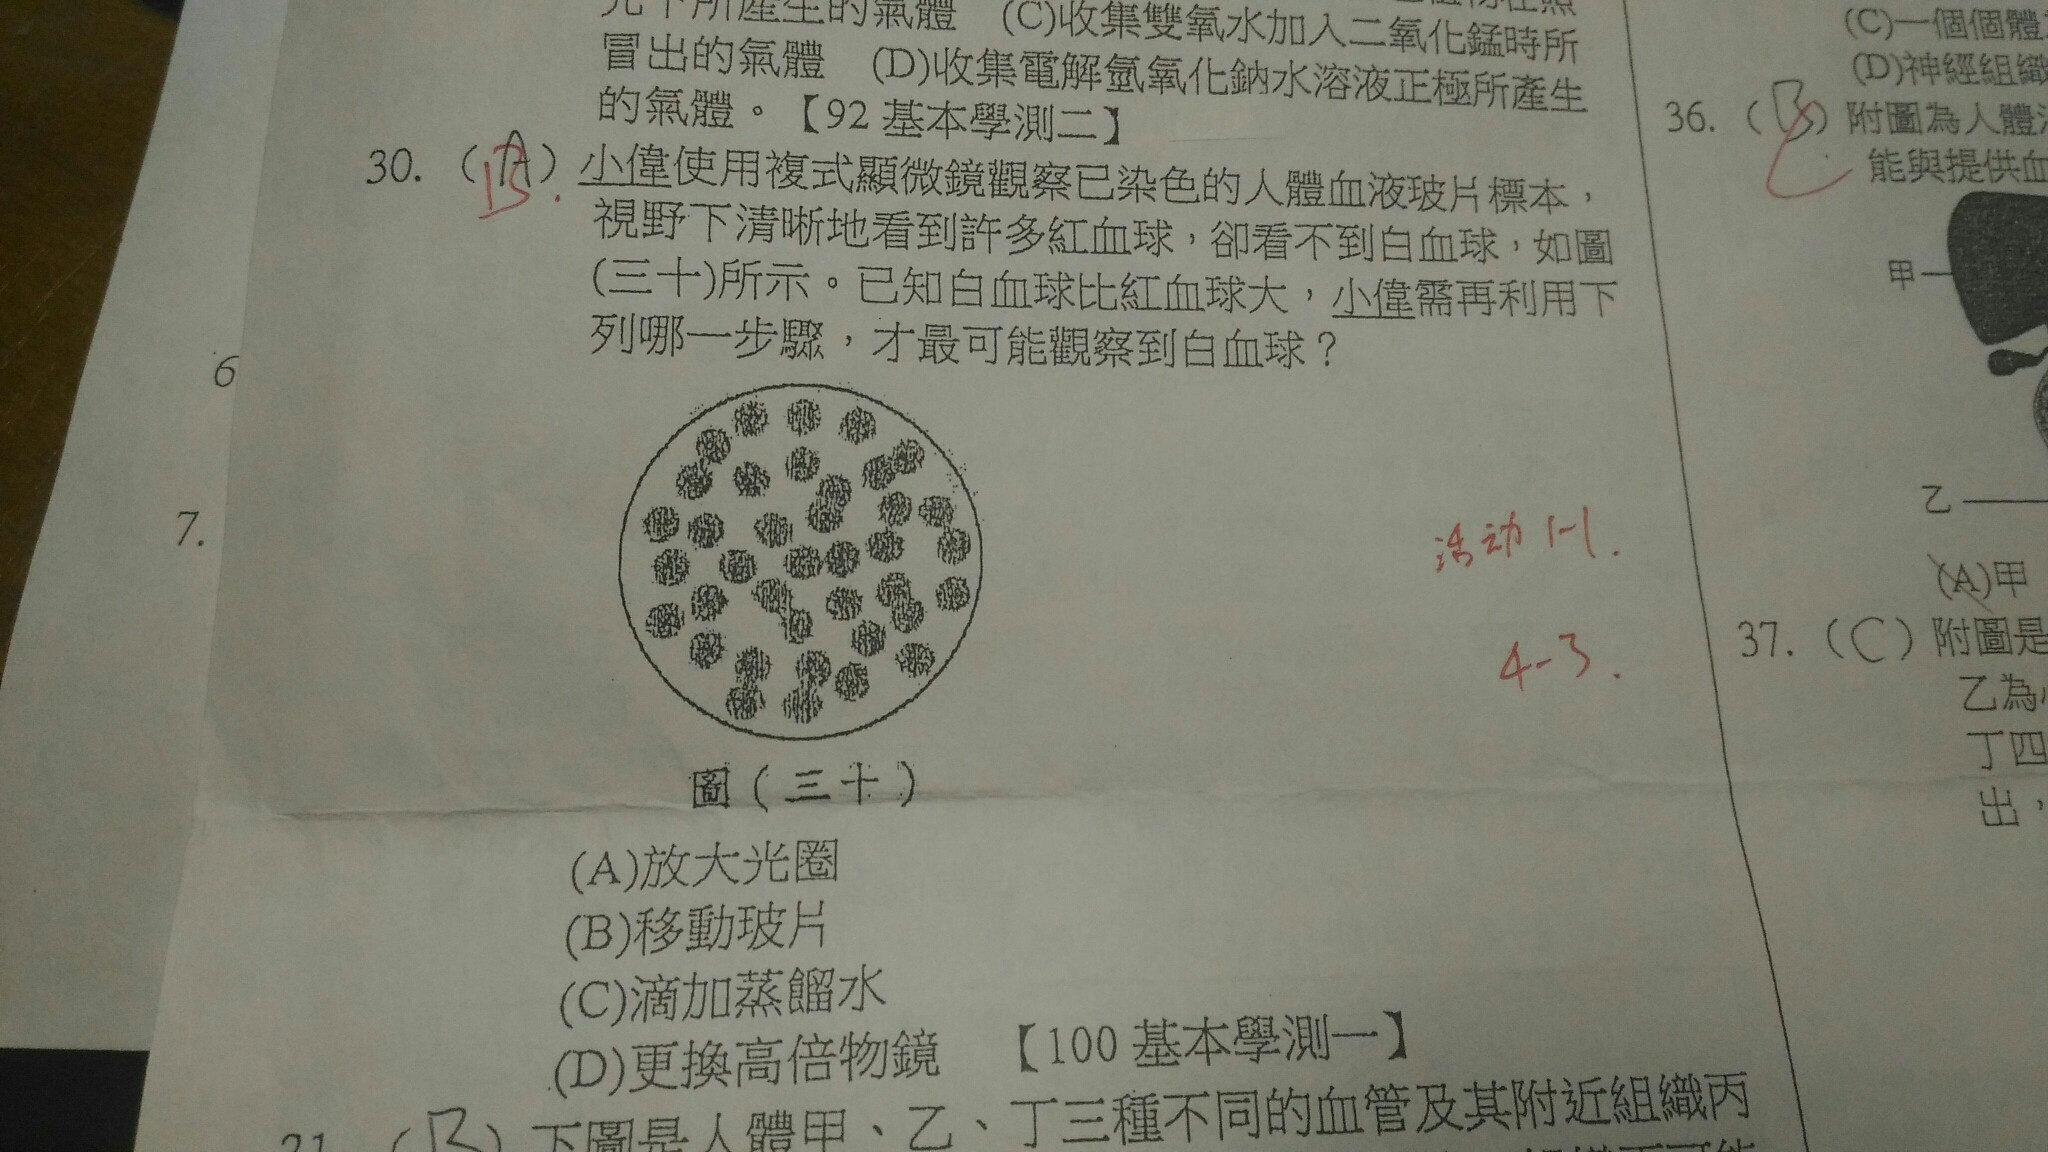 光下所產生的氣體　(C)收集雙氧水加入二氧化錳時所
冒出的氣體　(D)收集電解氫氧化鈉水溶液正極所產生
的氣體。【92 基本學測二】
30. (A) 小偉使用複式顯微鏡觀察已染色的人體血液玻片標本，
B.
視野下清晰地看到許多紅血球，卻看不到白血球，如圖
(三十)所示。已知白血球比紅血球大，小偉需再利用下
列哪一步驟，才最可能觀察到白血球？
圖(三十)
活动 1-1.
4-3.
(A)放大光圈
(B)移動玻片
(C)滴加蒸餾水
(D)更換高倍物鏡　【100 基本學測一】
31. (B) 下圖是人體甲、乙、丁三種不同的血管及其附近組織丙
6
7.
(C)一個個體
(D)神經組織
36. (B) 附圖為人體
C
能與提供血
甲
乙
(A)甲
37. (C) 附圖是
乙為
丁四
出，